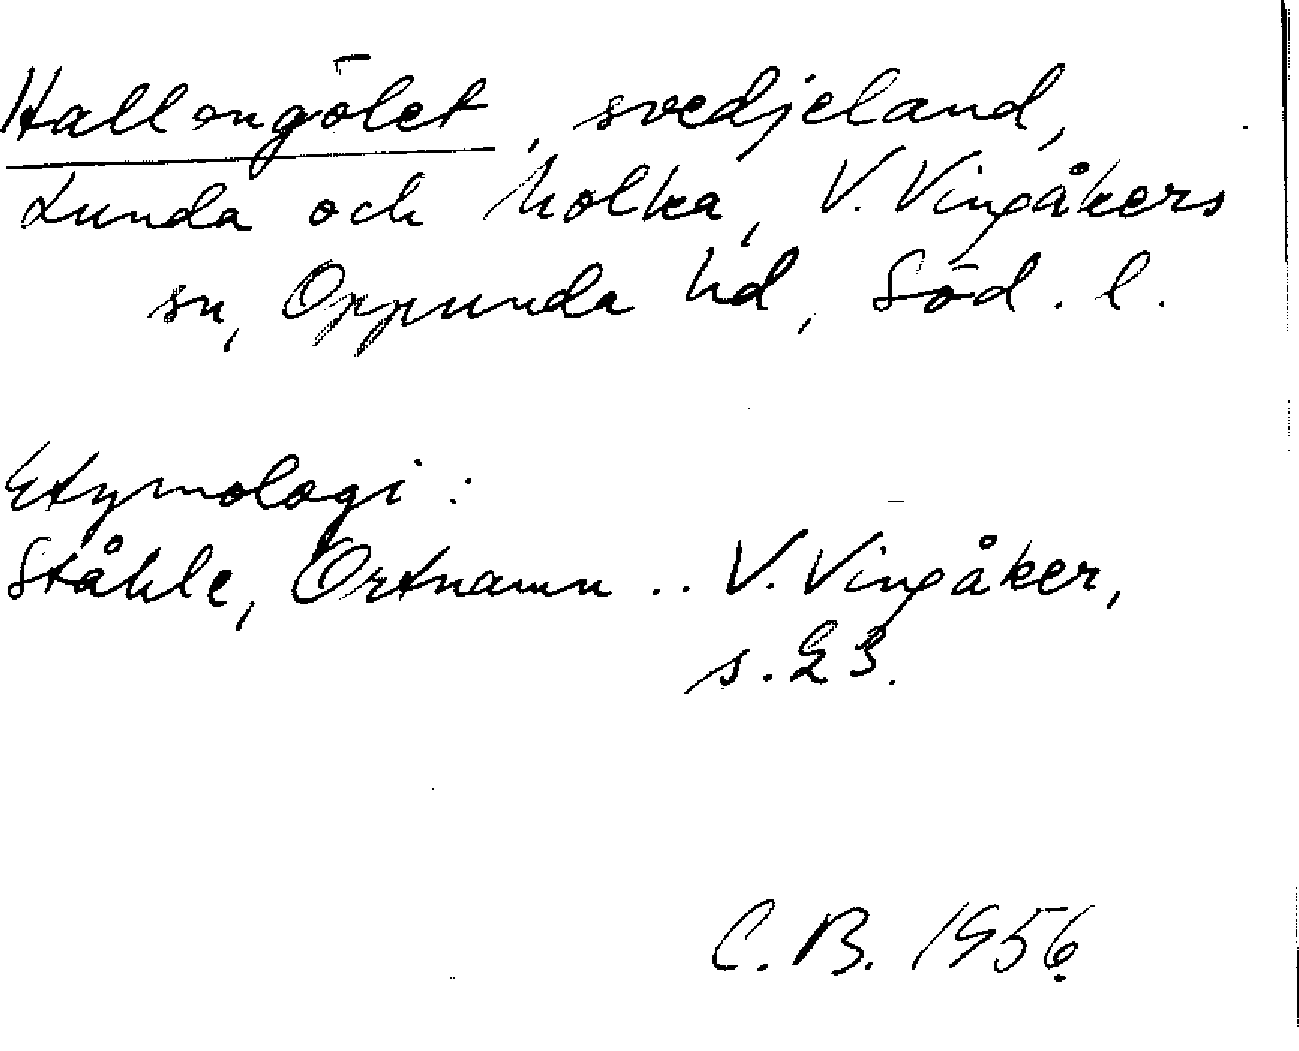 Hallongölet, svedjeland,
Lunda och Kolka, V. Vingåkers
sn, Oppunda hd, Söd. l.
Etymologi:
Ståhle, Ortnamn .. V. Vingåker,
s. 23.
C. B. 1956